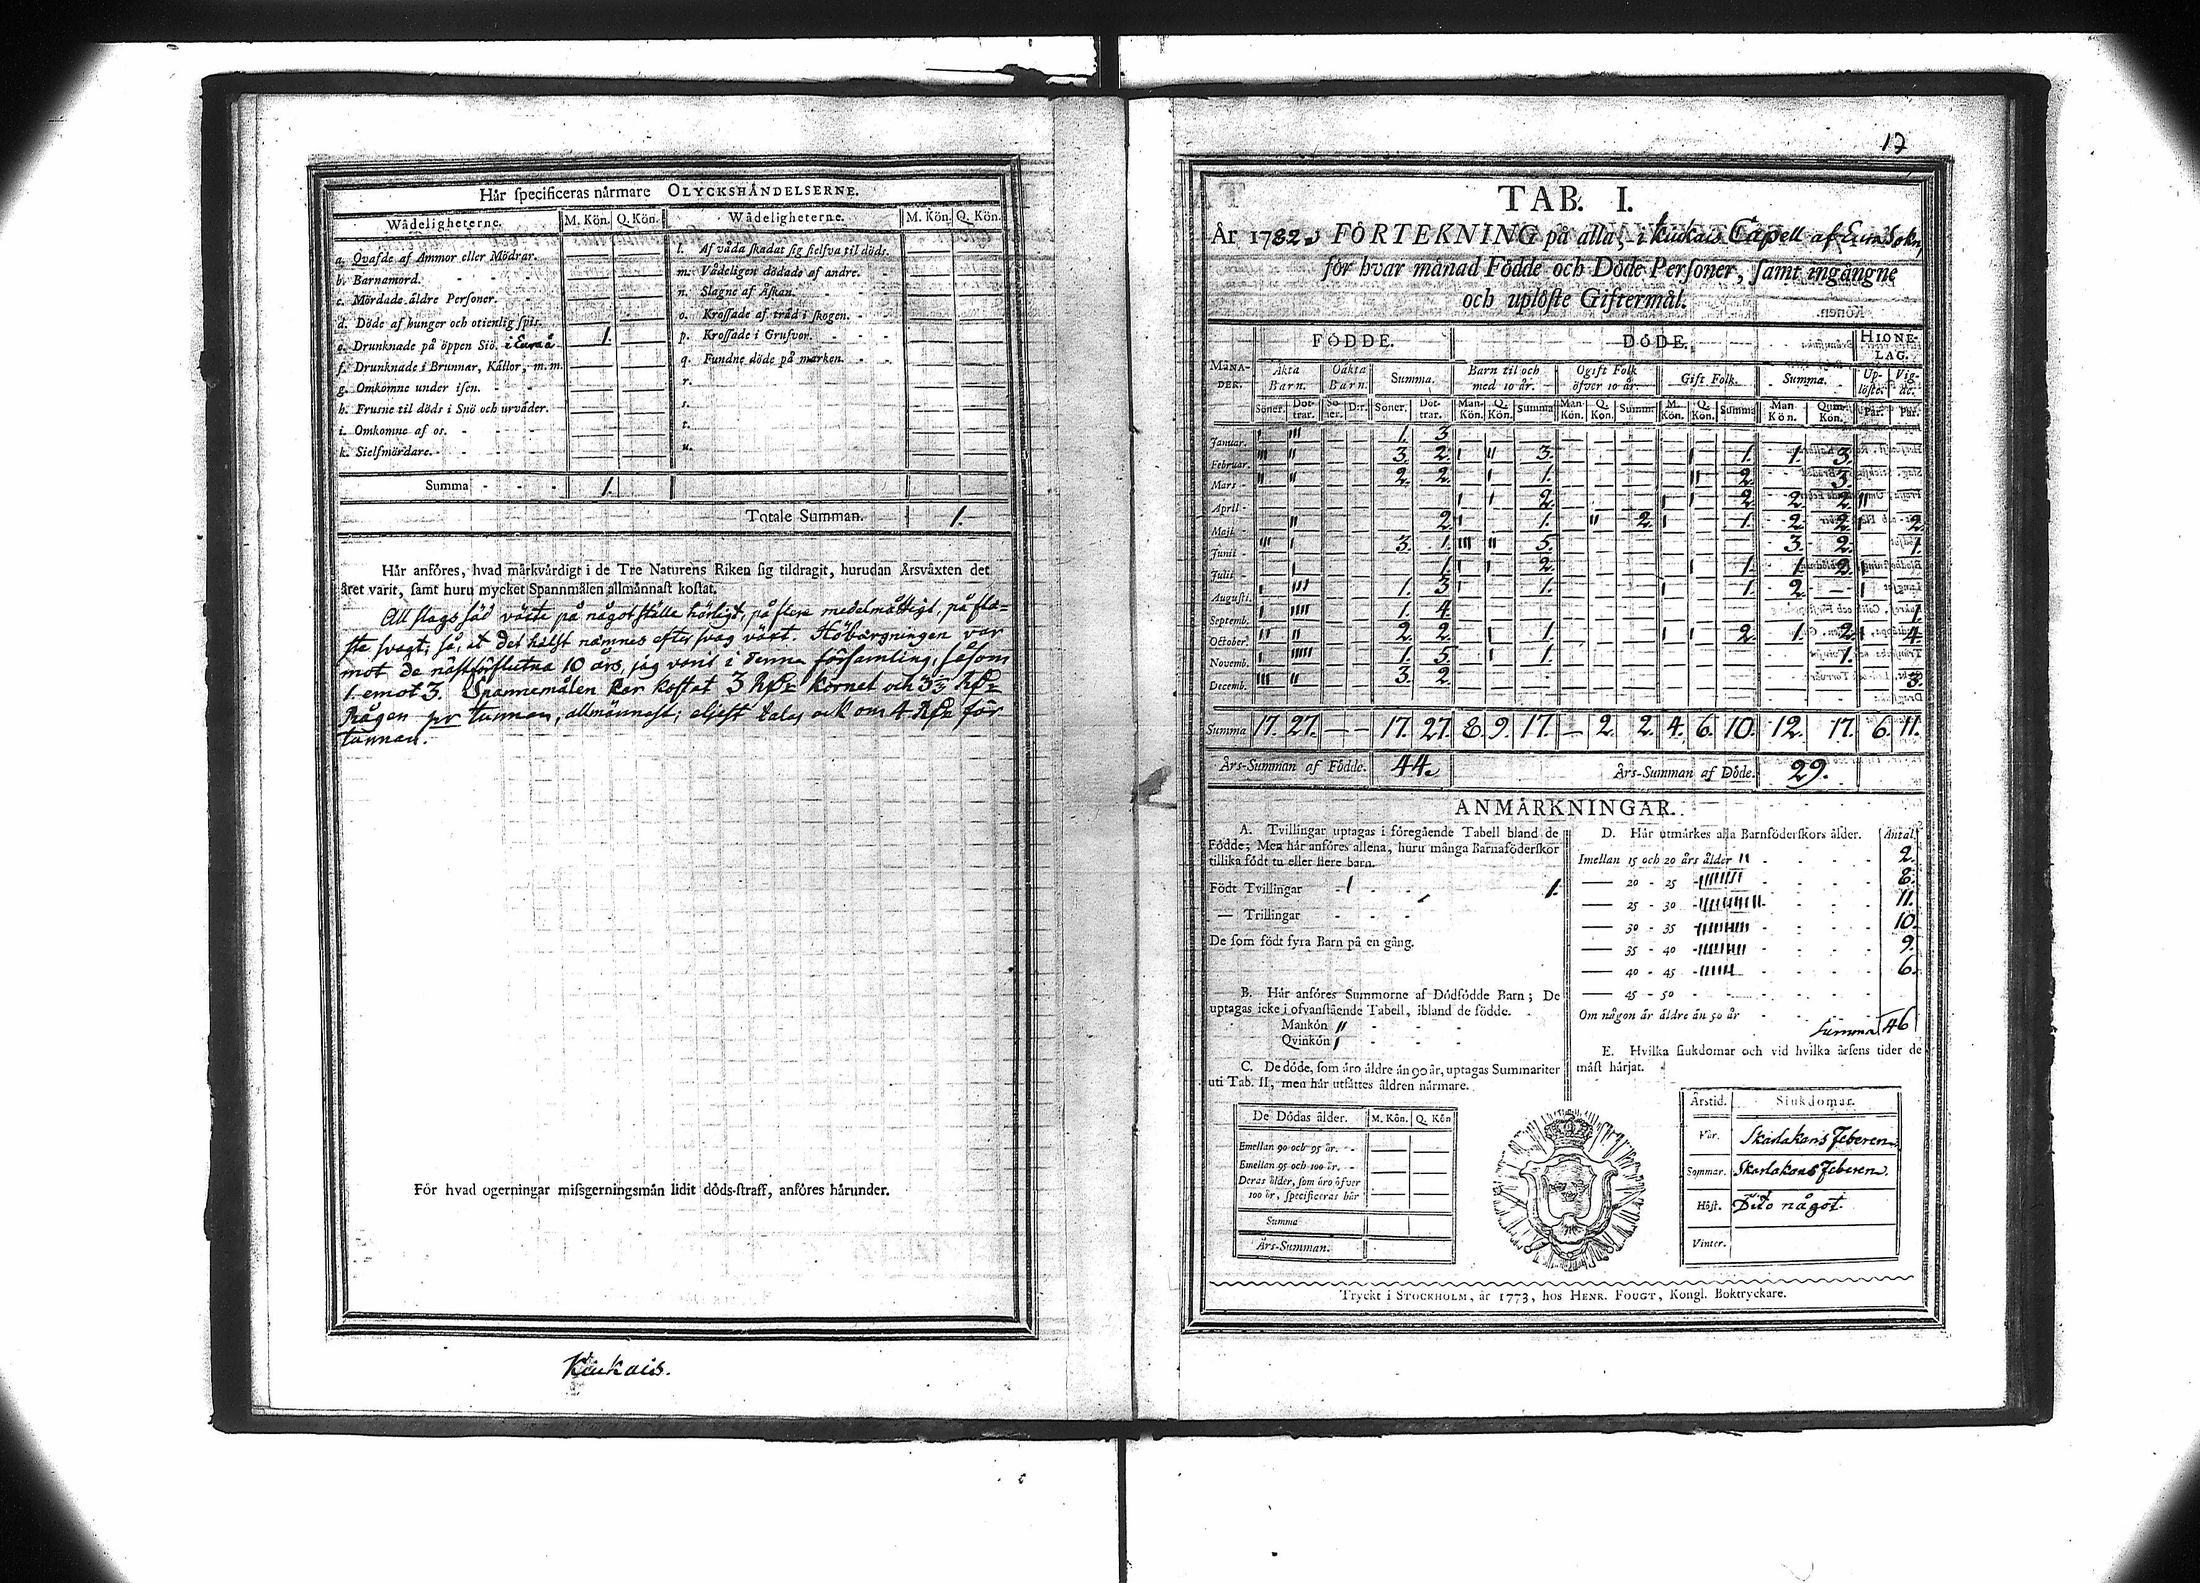 Hår specificeras nårmare OLYCKSHÅNDELSERNE.
Wådeligheterne. M. Kön. Q. Kön. Wådeligheterne. M. Kön. Q. Kön.
a. Qvafde af Ammor eller Mödrar.
b. Barnamord.
c. Mördade äldre Personer.
d. Döde af hunger och otienlig spis.
e. Drunknade på öppen Siö. i Eurå 1.
f. Drunknade i Brunnar, Källor, m. m.
g. Omkomne under isen.
h. Frusne til döds i Snö och urväder.
i. Omkomne af os.
k. Sielfmördare.
l. Af våda skadat sig sielfva til döds.
m. Vådeligen dödade af andre.
n. Slagne af Åskan.
o. Krossade af träd i skogen.
p. Krossade i Grufvor.
q. Fundne döde på marken.
r.
s.
t.
u.
Summa 1.
Totale Summan. 1.
Hår anföres, hvad mårkvärdigt i de Tre Naturens Riken sig tildragit, hurudan Årsväxten det
året varit, samt huru mycket Spannmålen allmännast kostat.
All slags säd växte på något ställe härligt, på flere medelmåttigt, på fle=
ste svagt, så, at det hälst nämnes efter svag växt. Höbärgningen var
mot de nästförflutna 10 års, jag varit i denna församling, såsom
1 emot 3. Spannemålen har kostat 3 Rdr kornet och
Rågen pr tunnan, allmännast; eljest talas ock om 4 Rdr för
tunnan.
För hvad ogerningar missgerningsmån lidit döds-straff, anföres hårunder.
Kiukais.
17
TAB. I.
År 1782. FÖRTEKNING på alla, i Kiukais Capell af Eura Sokn,
för hvar månad Födde och Döde Personer, samt ingångne
och uplöste Giftermål.
FÖDDE. DÖDE. HIONELAG.
MÅNADER. Åkta Barn. Oåkta Barn. Summa. Barn til och med 10 år. Ogift Folk öfver 10 år. Gift Folk. Summa. Uplöste. Vigde.
Söner. Döttrar. Söner. D:r. Söner. Döttrar. Man Kön. Q. Kön. Summa Man Kön. Q. Kön. Summa M. Kön. Q. Kön. Summa Man Kön. Quin. Kön. Par. Par.
Januar. 1. 3.
Februar. 3. 2. 3. 1. 1. 3.
Mars 2. 2. 1. 2. 3.
April 2. 2. 2. 2.
Maji 2. 1. 2. 1. 2. 2. 2.
Junii 3. 1. 5. 3. 2. 1.
Julii 1. 2. 1. 1. 2.
Augusti. 1. 3. 1. 1. 2.
Septemb. 1. 4. 1.
October. 2. 2. 1. 2. 1. 2. 4.
Novemb. 1. 5. 1. 1.
Decemb. 3. 2. 3.
Summa 17. 27. — — 17. 27. 8. 9. 17. — 2. 2. 4. 6. 10. 12. 17. 6. 11.
Års-Summan af Födde. 44. Års-Summan af Döde. 29.
ANMÅRKNINGAR.
A. Tvillingar uptagas i föregående Tabell bland de
Födde; Men hår anföres allena, huru många Barnaföderskor
tillika födt tu eller flere barn.
Födt Tvillingar 1 1.
— Trillingar
De som födt fyra Barn på en gång.
B. Hår anföres Summorne af Dödfödde Barn; De
uptagas icke i ofvanstående Tabell, ibland de födde.
Mankön 11
Qvinkön 1
C. De döde, som åro åldre ån 90 år, uptagas Summariter
uti Tab. II, men hår utsåttes åldren nårmare.
De Dödas ålder. M. Kön. Q. Kön
Emellan 90 och 95 år.
Emellan 95 och 100 år.
Deras ålder, som åro öfver
100 år, specificeras hår
Summa
Års-Summan.
D. Hår utmårkes alla Barnföderskors ålder. Antal.
Imellan 15 och 20 års ålder 2.
— 20 - 25 8.
— 25 - 30 11.
— 30 - 35 10.
— 35 - 40 9.
— 40 - 45 6.
— 45 - 50
Om någon år åldre ån 50 år
Summa 46
E. Hvilka siukdomar och vid hvilka årsens tider de
måst hårjat.
Årstid. Siukdomar.
Vår. Skarlakans Feberen.
Sommar. Skarlakans Feberen.
Höst. Dito något.
Vinter.
Tryckt i STOCKHOLM, år 1773, hos HENR. FOUGT, Kongl. Boktryckare.